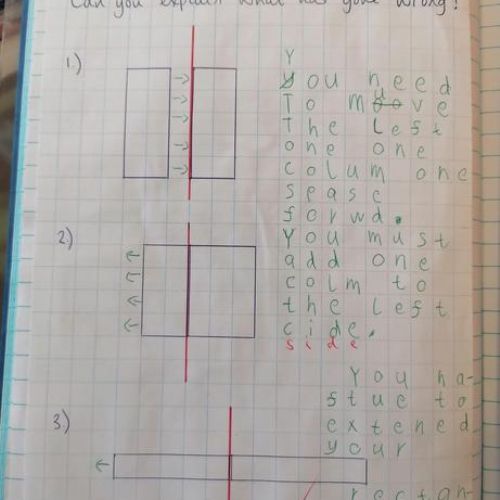 Can you explain what has gone wrong?
1.)
Y
you need
To muove
The left
one one
colum one
spase
forwd.
2)
You must
add one
colm to
the left
cide.
side
You ha-
stue to
extened
3)
your
rectan-